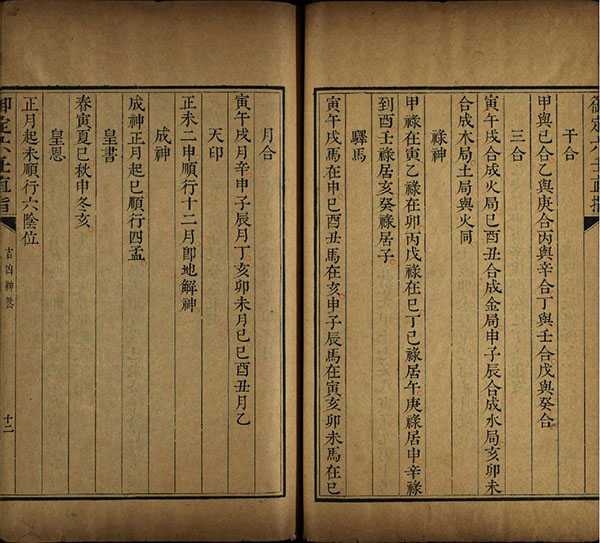 御定六壬直指
干合
甲與己合乙與庚合丙與辛合丁與壬合戊與癸合
三合
寅午戌合成火局巳酉丑合成金局申子辰合成水局亥卯未
合成木局土局與火同
祿神
甲祿在寅乙祿在卯丙戊祿在巳丁己祿居午庚祿居申辛祿
到酉壬祿居亥癸祿居子
驛馬
寅午戌馬在申巳酉丑馬在亥申子辰馬在寅亥卯未馬在巳
月合
寅午戌月辛申子辰月丁亥卯未月己巳酉丑月乙
天印
正未二申順行十二月卽地解神
成神
成神正月起巳順行四孟
皇書
春寅夏巳秋申冬亥
皇恩
正月起未順行六陰位
御定六壬直指
吉凶神煞
十二